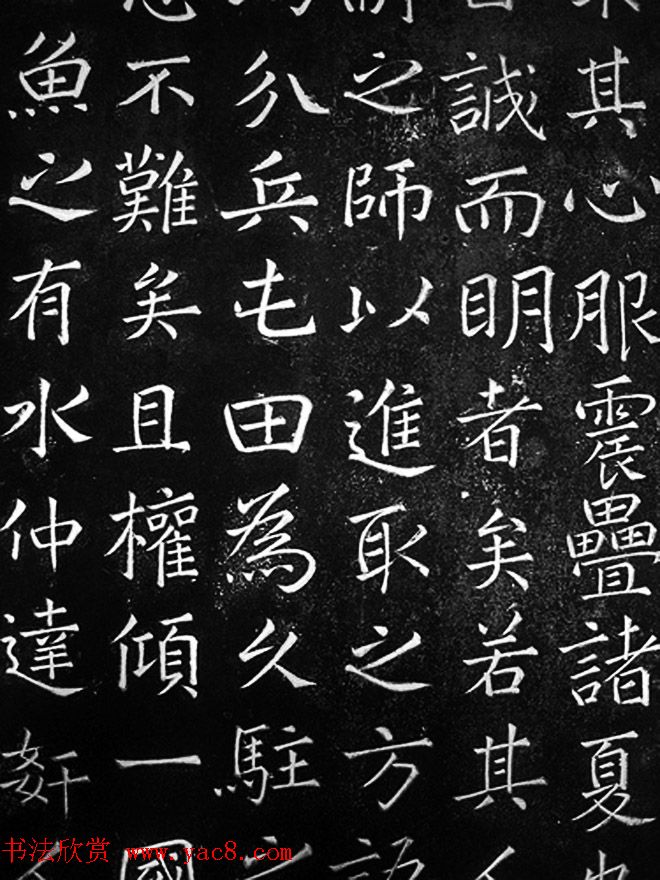 其心服震疊諸夏
誠而明者矣若其
之師以進取之方語
分兵屯田為久駐之
不難矣且權傾一國
魚之有水仲達奸
书法欣赏 www.yac8.com